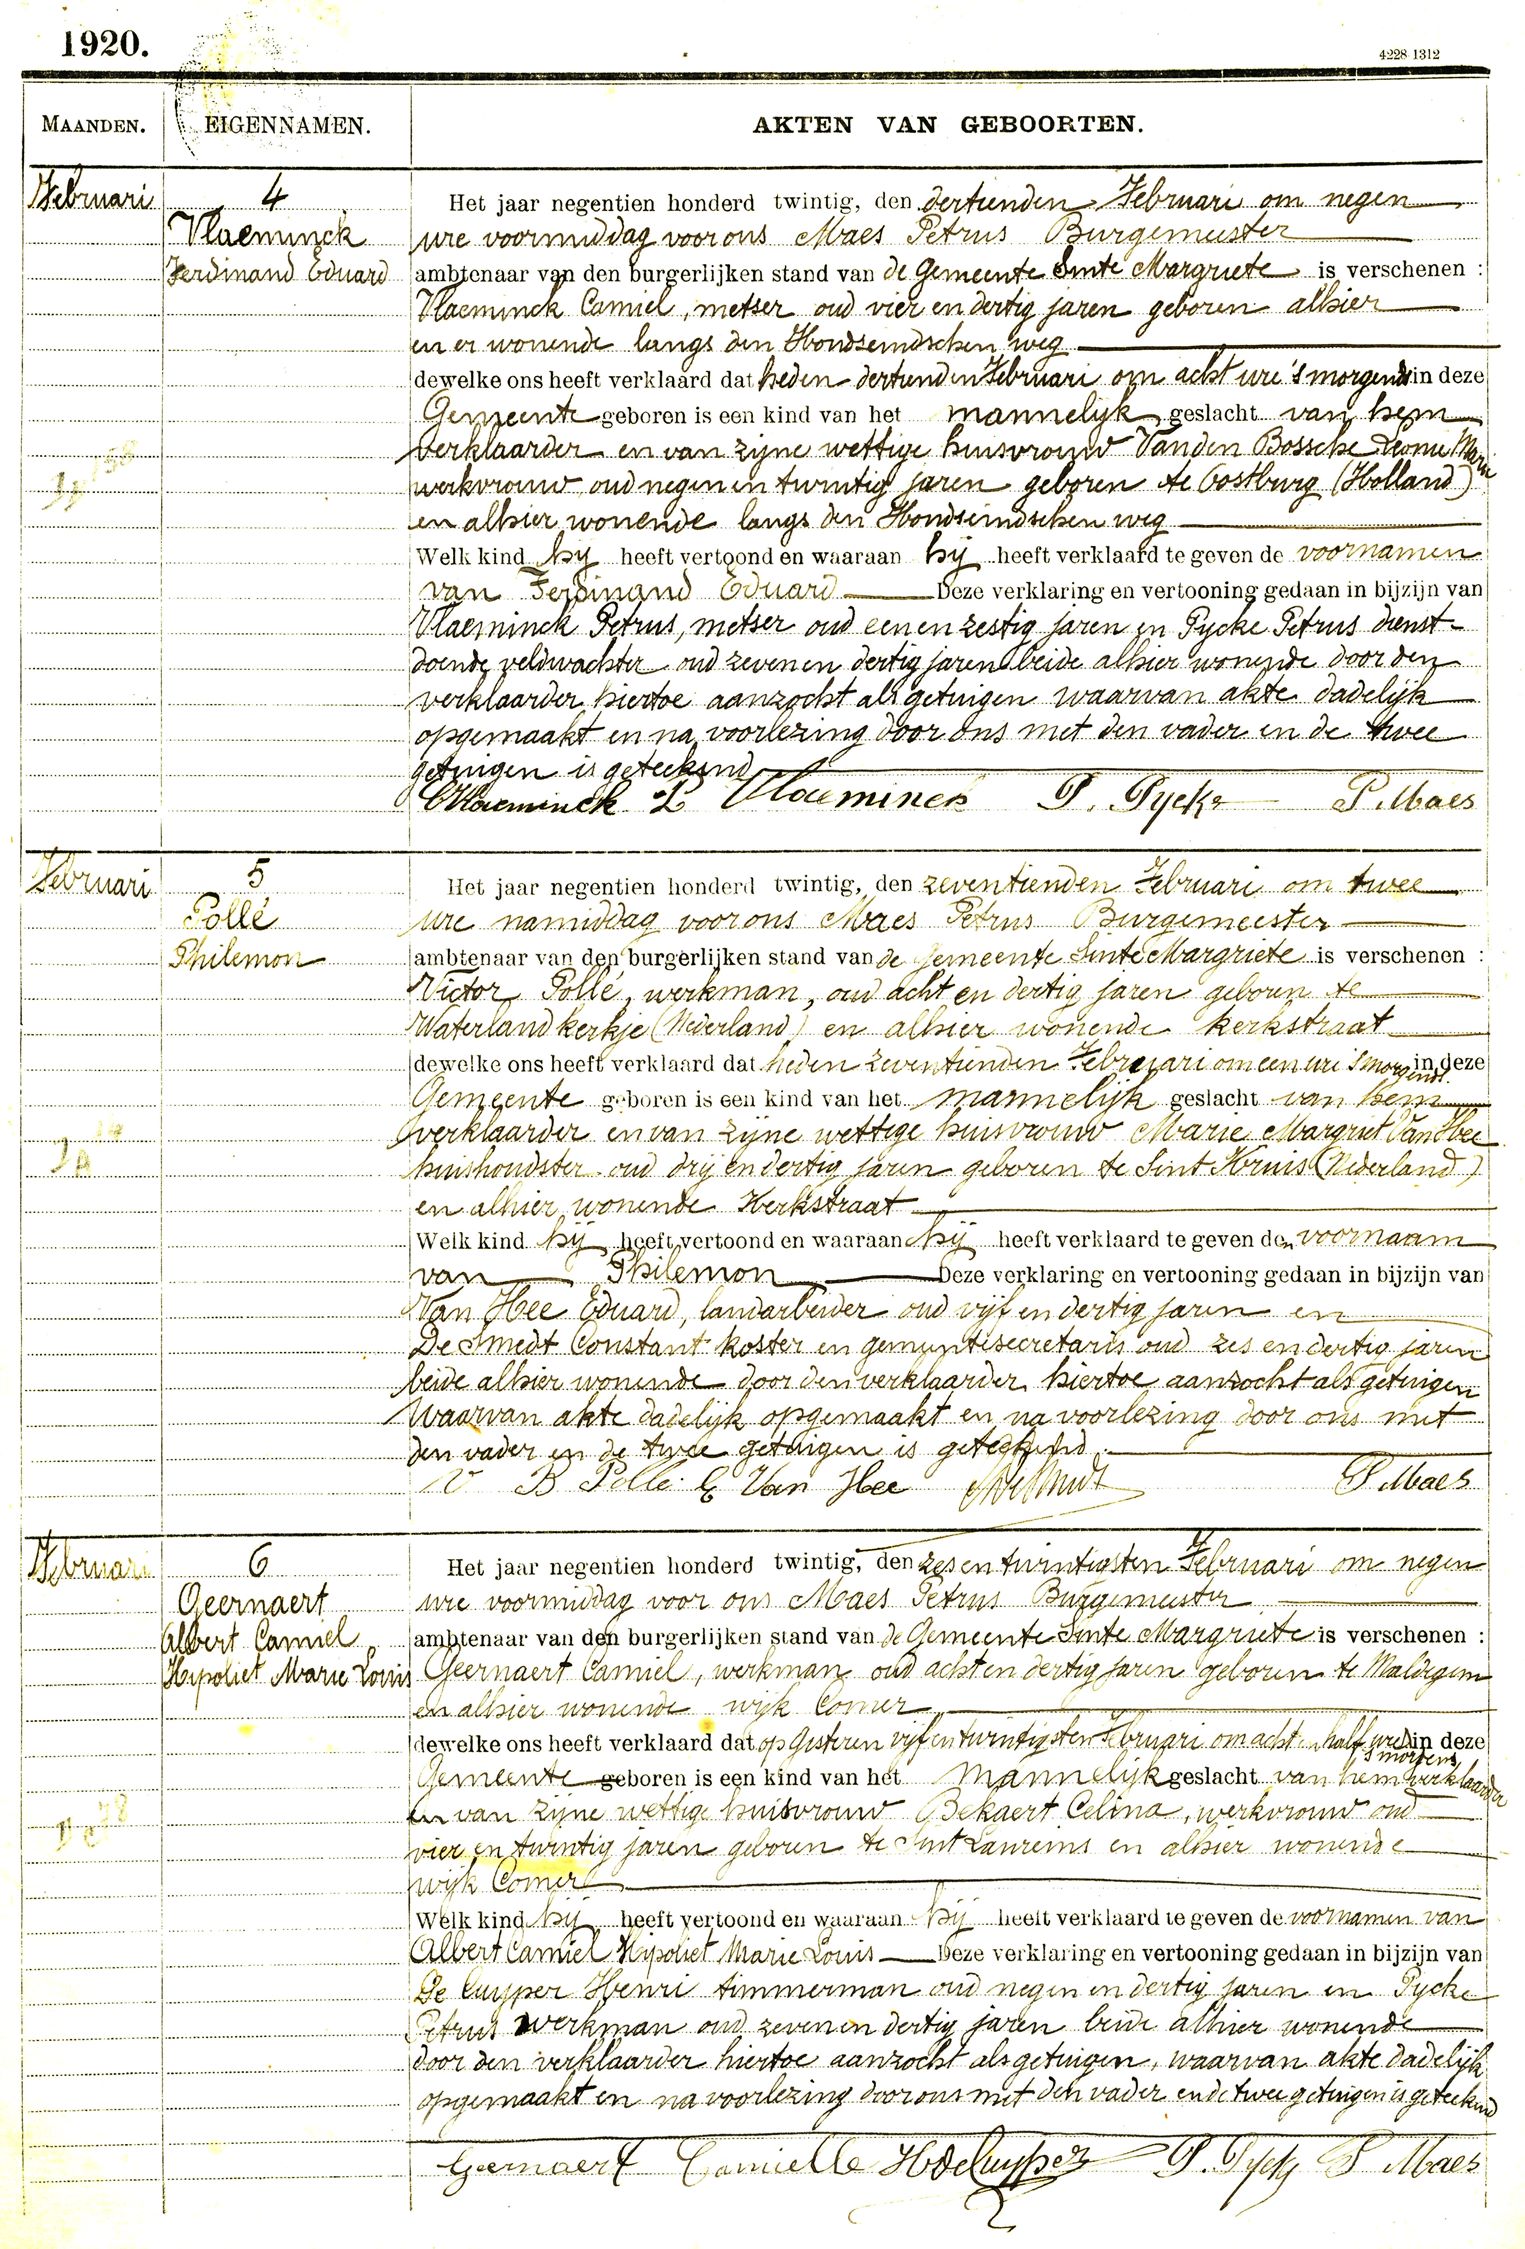 1920.
4228-1312
MAANDEN.
EIGENNAMEN.
AKTEN VAN GEBOORTEN.
Februari
4
Vlaeminck
Ferdinand Eduard
Het jaar negentien honderd twintig, den dertienden Februari om negen
ure voormiddag voor ons Maes Petrus Burgemeester
ambtenaar van den burgerlijken stand van de Gemeente Sinte Margriete is verschenen :
Vlaeminck Camiel, metser oud vier en dertig jaren geboren alhier
en er wonende langs den Hondseindschen weg
dewelke ons heeft verklaard dat heden dertienden Februari om acht ure 's morgends in deze
Gemeente geboren is een kind van het mannelijk geslacht van hem
verklaarder en van zijne wettige huisvrouw Vanden Bossche Leonie Marie
werkvrouw oud negen en twintig jaren geboren te Oostburg (Holland)
en alhier wonende langs den Hondseindschen weg
Welk kind hij heeft vertoond en waaraan hij heeft verklaard te geven de voornamen
van Ferdinand Eduard Deze verklaring en vertooning gedaan in bijzijn van
Vlaeminck Petrus, metser oud een en zestig jaren en Pycke Petrus dienst-
doende veldwachter oud zeven en dertig jaren beide alhier wonende door den
verklaarder hiertoe aanzocht als getuigen waarvan akte dadelijk
opgemaakt en na voorlezing door ons met den vader en de twee
getuigen is geteekend
C Vlaeminck P Vlaeminck P. Pycke P. Maes
Februari
5
Pollé
Philemon
Het jaar negentien honderd twintig, den zeventienden Februari om twee
ure namiddag voor ons Maes Petrus Burgemeester
ambtenaar van den burgerlijken stand van de Gemeente Sinte Margriete is verschenen :
Victor Pollé, werkman, oud acht en dertig jaren geboren te
Waterlandkerkje (Nederland) en alhier wonende kerkstraat
dewelke ons heeft verklaard dat heden zeventienden Februari om een ure 's morgends in deze
Gemeente geboren is een kind van het mannelijk geslacht van hem
verklaarder en van zijne wettige huisvrouw Marie Margriet Van Hee
huishoudster oud drij en dertig jaren geboren te Sint Kruis (Nederland)
en alhier wonende Kerkstraat
Welk kind hij heeft vertoond en waaraan hij heeft verklaard te geven den voornaam
van Philemon Deze verklaring en vertooning gedaan in bijzijn van
Van Hee Eduard, landarbeider oud vijf en dertig jaren en
De Smedt Constant koster en gemeentesecretaris oud zes en dertig jaren
beide alhier wonende door den verklaarder hiertoe aanzocht als getuigen
Waarvan akte dadelijk opgemaakt en na voorlezing door ons met
den vader en de twee getuigen is geteekend.
V B Pollé E Van Hee P. Maes
Februari
6
Geernaert
Albert Camiel
Hipoliet Marie Louis
Het jaar negentien honderd twintig, den zes en twintigsten Februari om negen
ure voormiddag voor ons Maes Petrus Burgemeester
ambtenaar van den burgerlijken stand van de Gemeente Sinte Margriete is verschenen :
Geernaert Camiel, werkman oud acht en dertig jaren geboren te Maldegem
en alhier wonende wijk Comer
dewelke ons heeft verklaard dat op gisteren vijf en twintigsten Februari om acht half ure 's morgens in deze
Gemeente geboren is een kind van het mannelijk geslacht van hem verklaarder
en van zijne wettige huisvrouw Bekaert Celina, werkvrouw oud
vier en twintig jaren geboren te Sint Laureins en alhier wonende
wijk Comer
Welk kind hij heeft vertoond en waaraan hij heeft verklaard te geven de voornamen van
Albert Camiel Hipoliet Marie Louis Deze verklaring en vertooning gedaan in bijzijn van
De Cuyper Henri timmerman oud negen en dertig jaren en Pycke
Petrus werkman oud zeven en dertig jaren beide alhier wonende
door den verklaarder hiertoe aanzocht als getuigen, waarvan akte dadelijk
opgemaakt en na voorlezing door ons met den vader en de twee getuigen is geteekend
Geernaert Camielle H DeCuyper P. Pycke P Maes